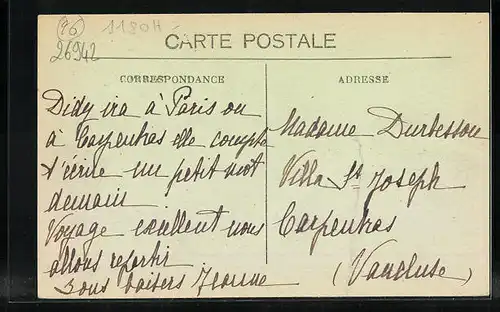 96
1180H
26942
CARTE POSTALE
CORRESPONDANCE
Didy ira à Paris ou
à Carpentras elle compte
t'écrire un petit mot
demain
Voyage excellent nous
allons repartir
Bons baisers Jeanne
ADRESSE
Madame Durbesson
Villa St Joseph
Carpentras
(Vaucluse)